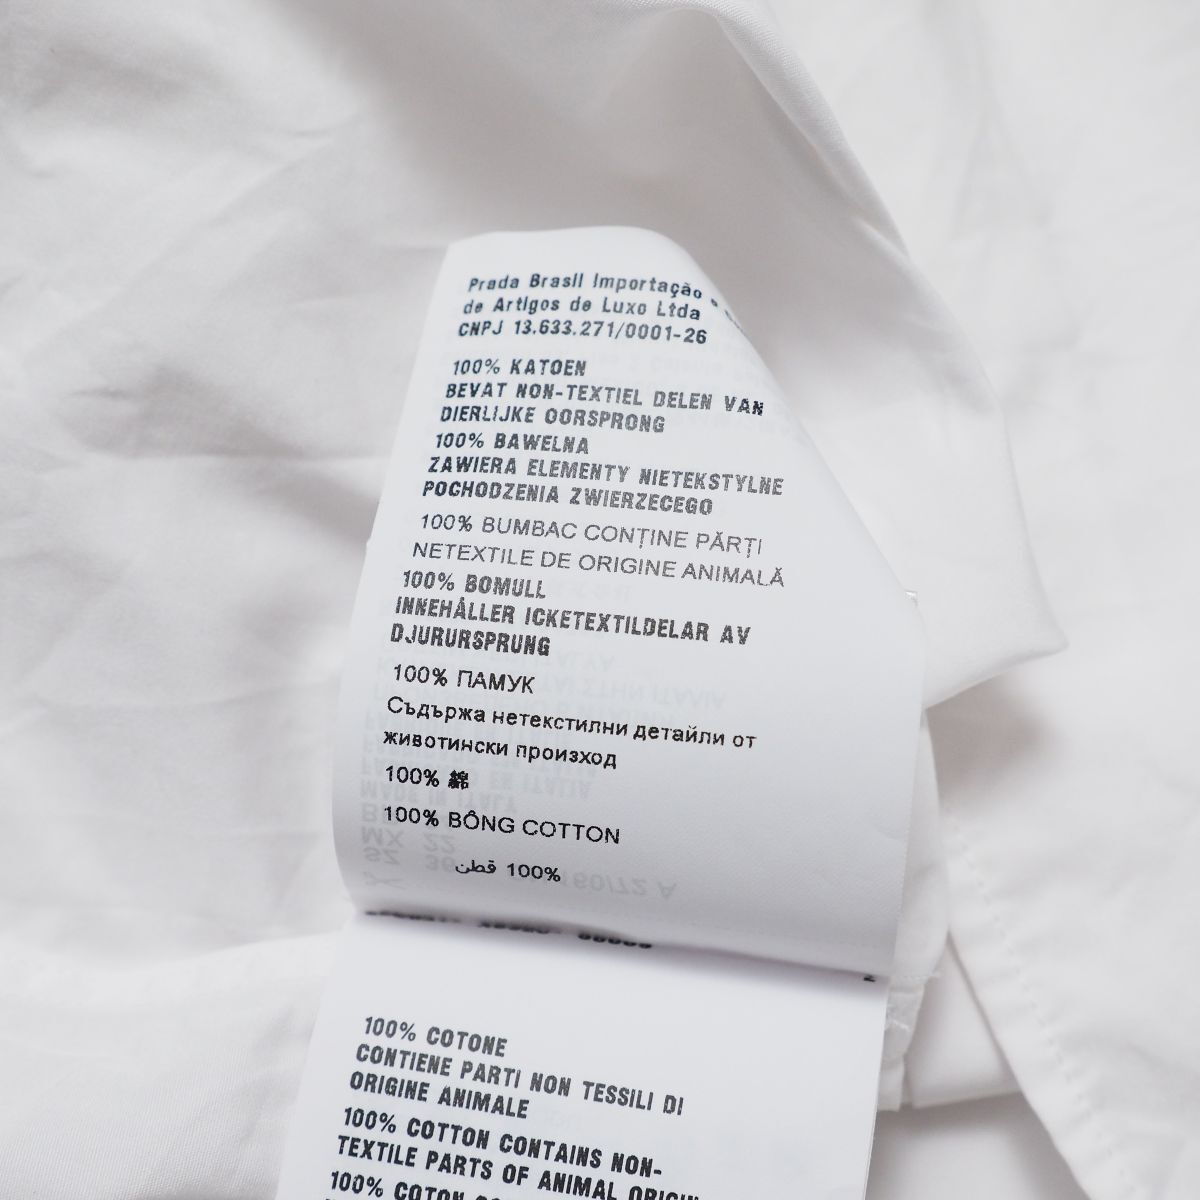 Prada Brasil Importação e
de Artigos de Luxo Ltda
CNPJ 13.633.271/0001-26
100% KATOEN
BEVAT NON-TEXTIEL DELEN VAN
DIERLIJKE OORSPRONG
100% BAWELNA
ZAWIERA ELEMENTY NIETEKSTYLNE
POCHODZENIA ZWIERZECEGO
100% BUMBAC CONȚINE PĂRȚI
NETEXTILE DE ORIGINE ANIMALĂ
100% BOMULL
INNEHÅLLER ICKETEXTILDELAR AV
DJURURSPRUNG
100% ПАМУК
Съдържа нетекстилни детайли от
животински произход
100% 綿
100% BÔNG COTTON
100% قطن
100% COTONE
CONTIENE PARTI NON TESSILI DI
ORIGINE ANIMALE
100% COTTON CONTAINS NON-
TEXTILE PARTS OF ANIMAL ORIGIN
100% COTON